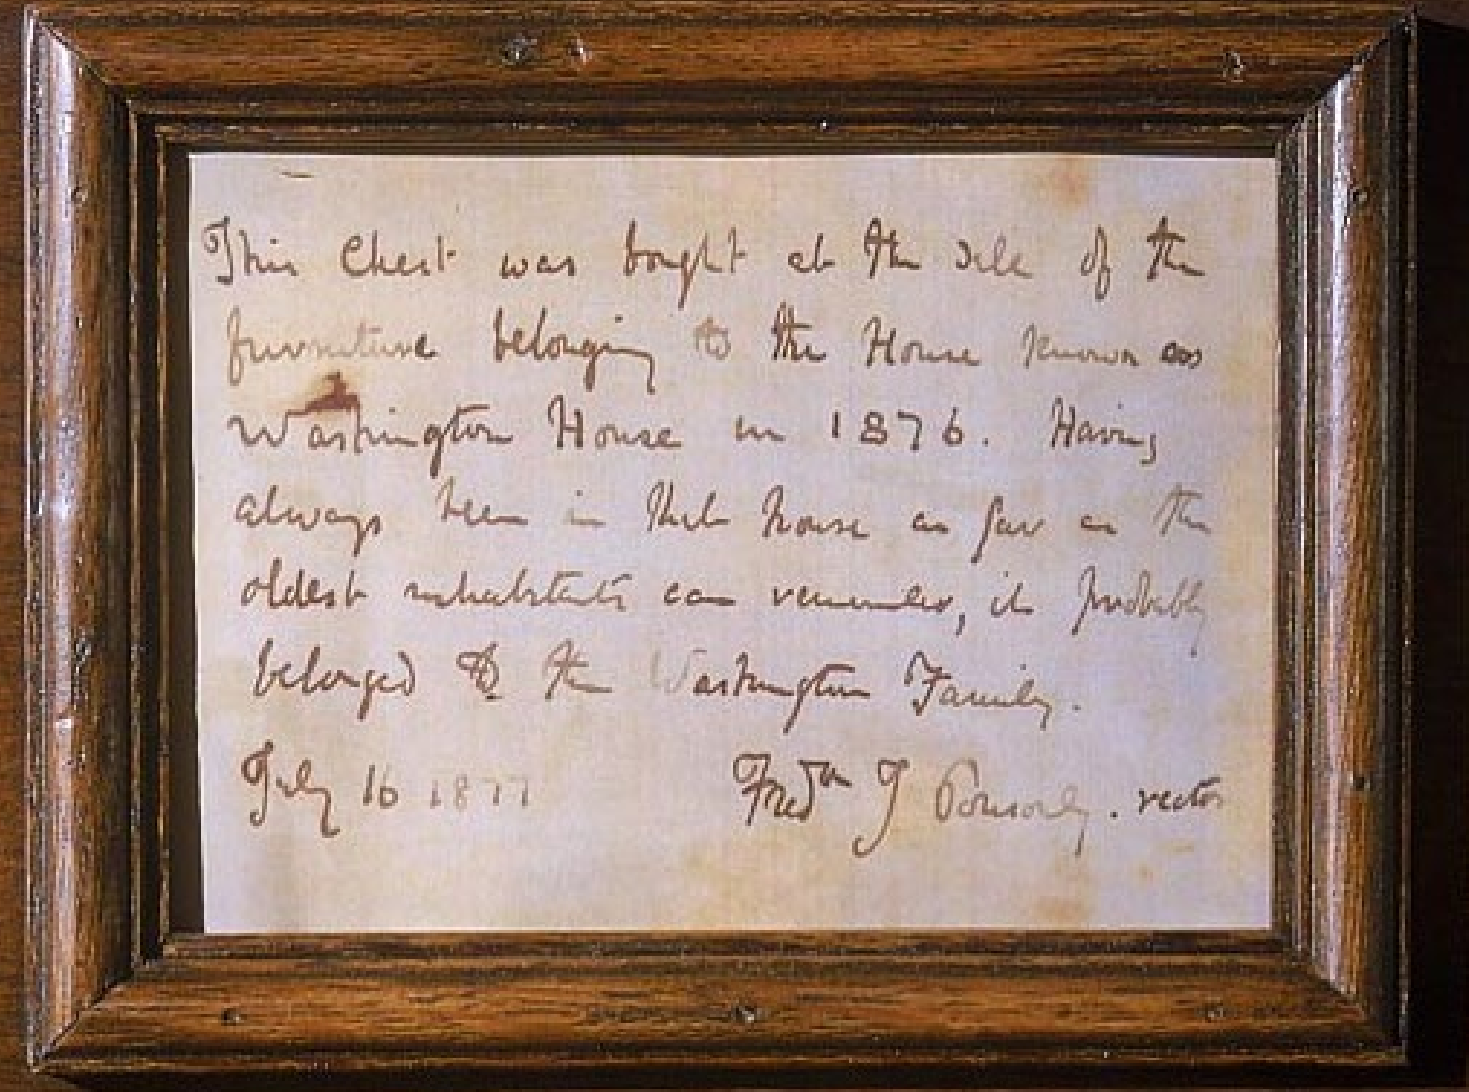 This Chest was bought at the sale of the
furniture belonging to the House known as
Washington House in 1876. Having
always been in that house as far as the
oldest inhabitants can remember, it probably
belonged to the Washington Family.
July 16 1877 Fred^m J Ponsonby. rector